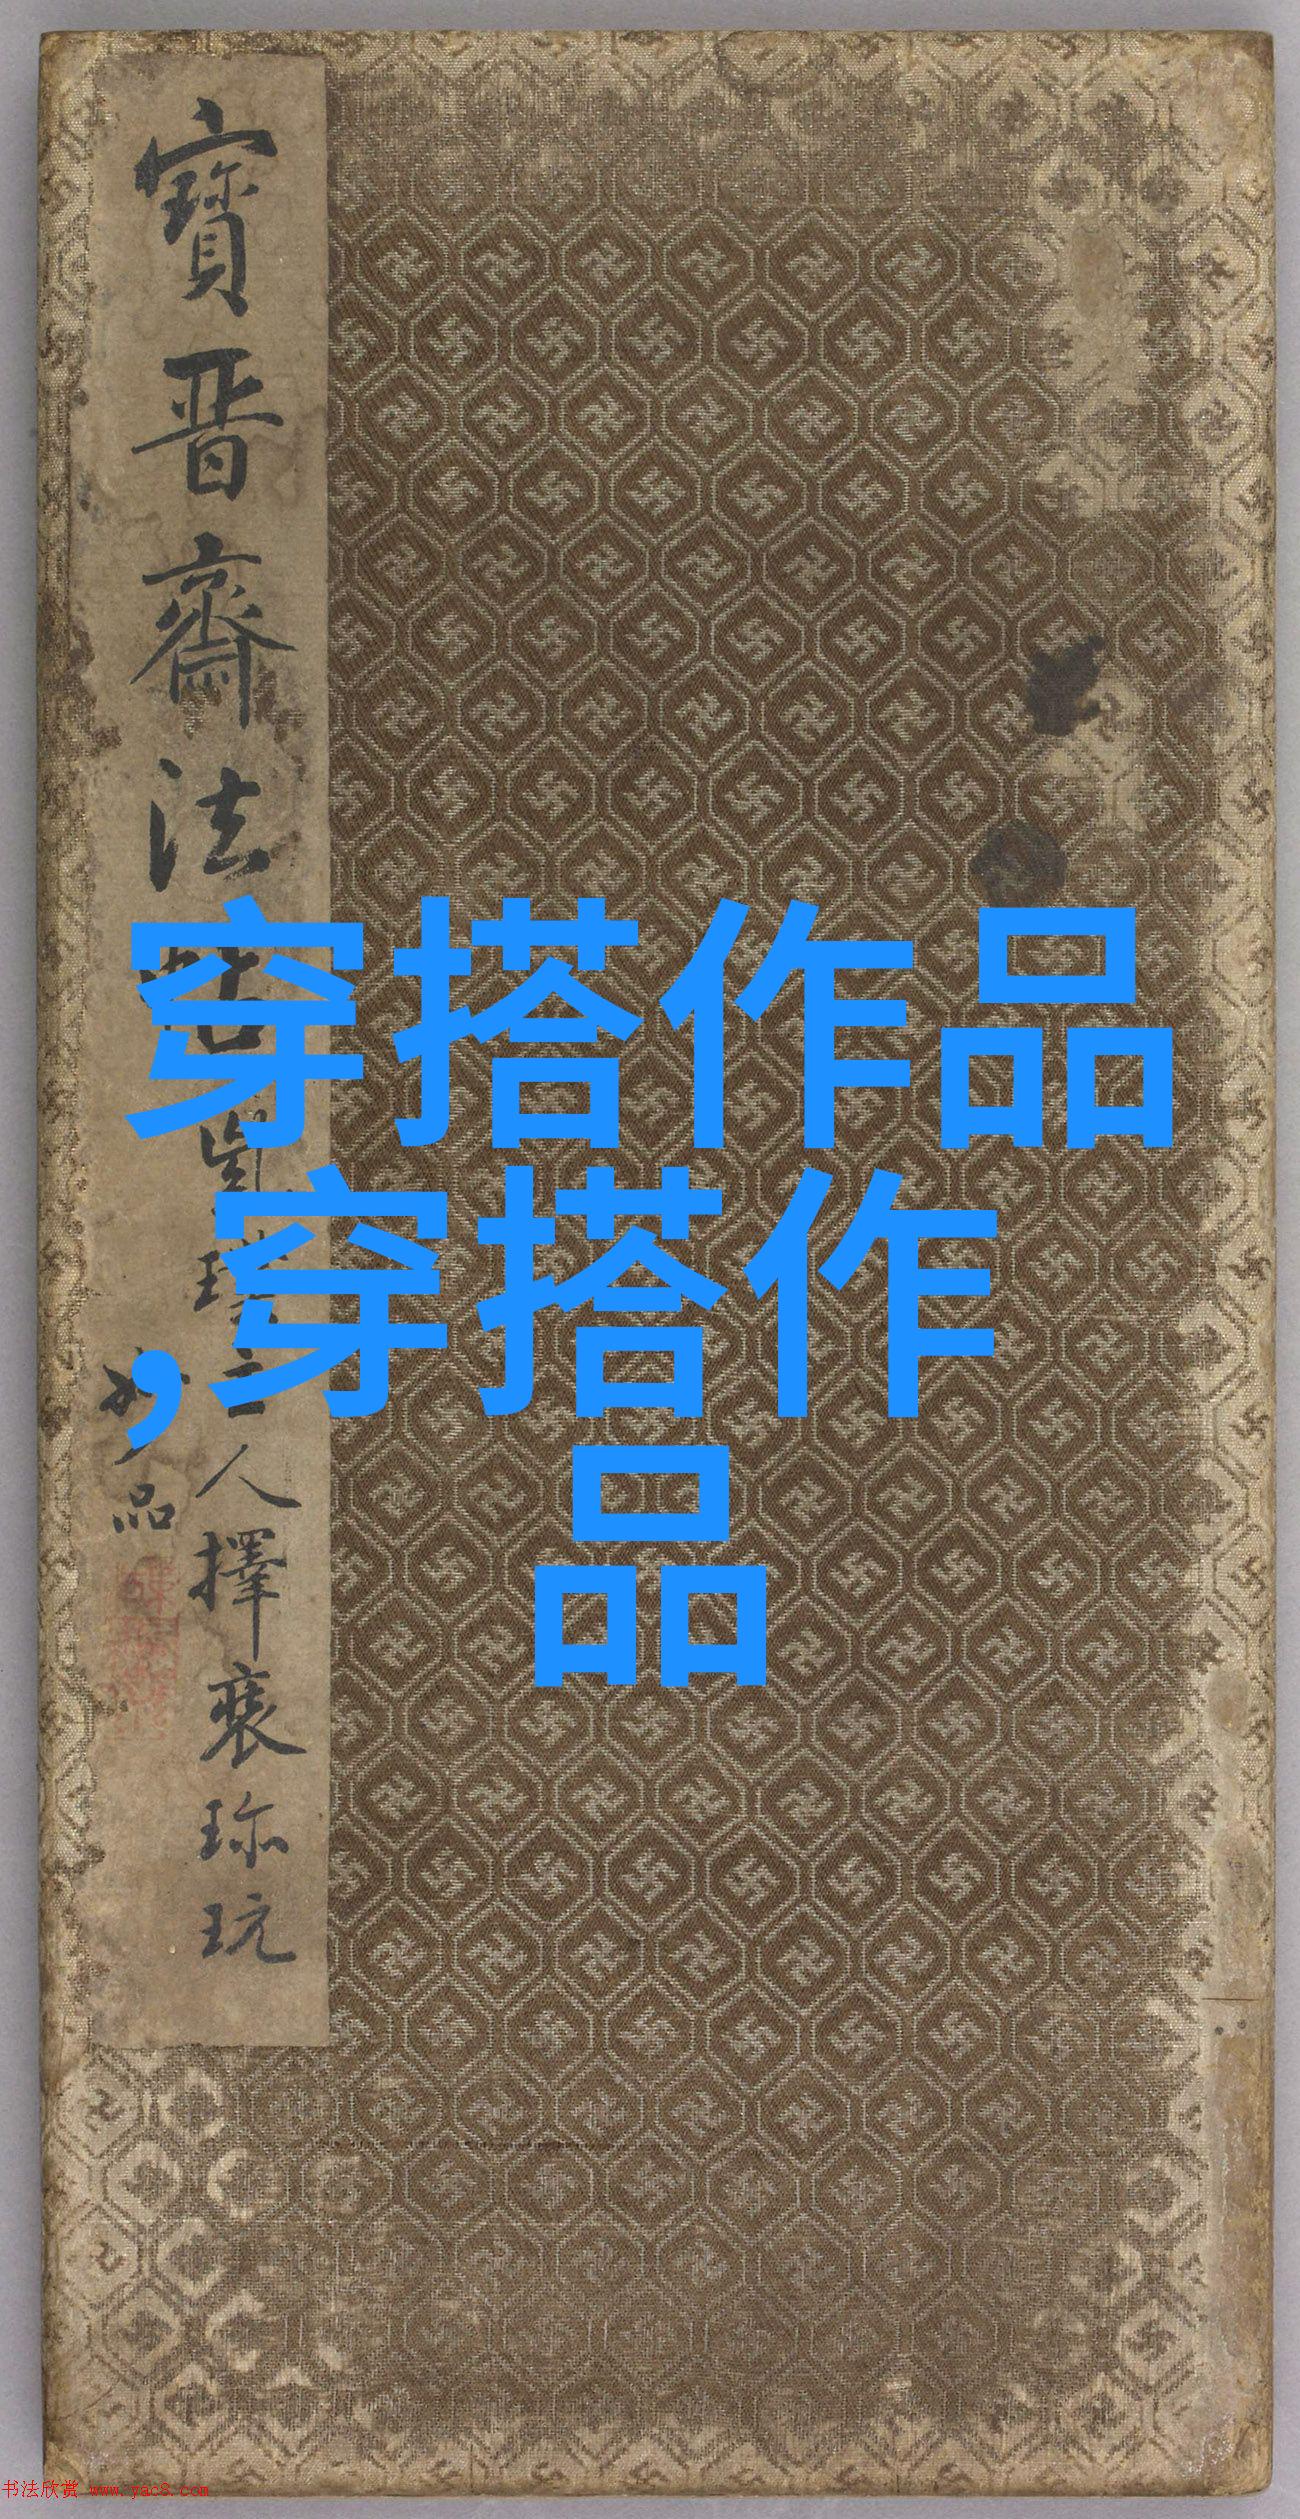 寶晋齋法帖
人擇裵珎玩
妙品
穿搭作品
,穿搭作
品
书法欣赏 www.yac8.com